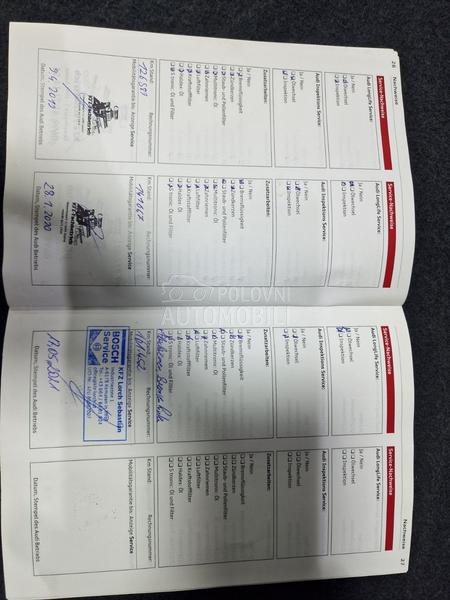 26
Nachweise
Service-Nachweise
Audi LongLife Service:
Ja / Nein
Ölwechsel
Inspektion
Audi Inspektions Service:
Ja / Nein
Ölwechsel
Inspektion
Zusatzarbeiten:
Ja / Nein
Bremsflüssigkeit
Zündkerzen
Staub- und Pollenfilter
Multitronic: Öl
Zahnriemen
Luftfilter
Kraftstofffilter
Haldex: Öl
S tronic: Öl und Filter
Km-Stand:
Rechnungsnummer:
Mobilitätsgarantie bis: Anzeige Service
KFZ-Fachbetrieb
9.4.2019
Datum, Stempel des Audi Betriebs
Service-Nachweise
Audi LongLife Service:
Ja / Nein
Ölwechsel
Inspektion
Audi Inspektions Service:
Ja / Nein
Ölwechsel
Inspektion
Zusatzarbeiten:
Ja / Nein
Bremsflüssigkeit
Zündkerzen
Staub- und Pollenfilter
Multitronic: Öl
Zahnriemen
Luftfilter
Kraftstofffilter
Haldex: Öl
S tronic: Öl und Filter
Km-Stand:
Rechnungsnummer:
Mobilitätsgarantie bis: Anzeige Service
28.1.2020
Datum, Stempel des Audi Betriebs
POLOVNI
AUTOMOBILI
Service-Nachweise
Audi LongLife Service:
Ja / Nein
Ölwechsel
Inspektion
Audi Inspektions Service:
Ja / Nein
Ölwechsel
Inspektion
Zusatzarbeiten:
Ja / Nein
Bremsflüssigkeit
Zündkerzen
Staub- und Pollenfilter
Multitronic: Öl
Zahnriemen
Luftfilter
Kraftstofffilter
Haldex: Öl
S tronic: Öl und Filter
Km-Stand:
Rechnungsnummer:
Mobilitätsgarantie bis: Anzeige Service
KFZ Lorch Sebastian
BOSCH
Service
17.05.2021
Datum, Stempel des Audi Betriebs
Nachweise
27
Service-Nachweise
Audi LongLife Service:
Ja / Nein
Ölwechsel
Inspektion
Audi Inspektions Service:
Ja / Nein
Ölwechsel
Inspektion
Zusatzarbeiten:
Ja / Nein
Bremsflüssigkeit
Zündkerzen
Staub- und Pollenfilter
Multitronic: Öl
Zahnriemen
Luftfilter
Kraftstofffilter
Haldex: Öl
S tronic: Öl und Filter
Km-Stand:
Rechnungsnummer:
Mobilitätsgarantie bis: Anzeige Service
Datum, Stempel des Audi Betriebs